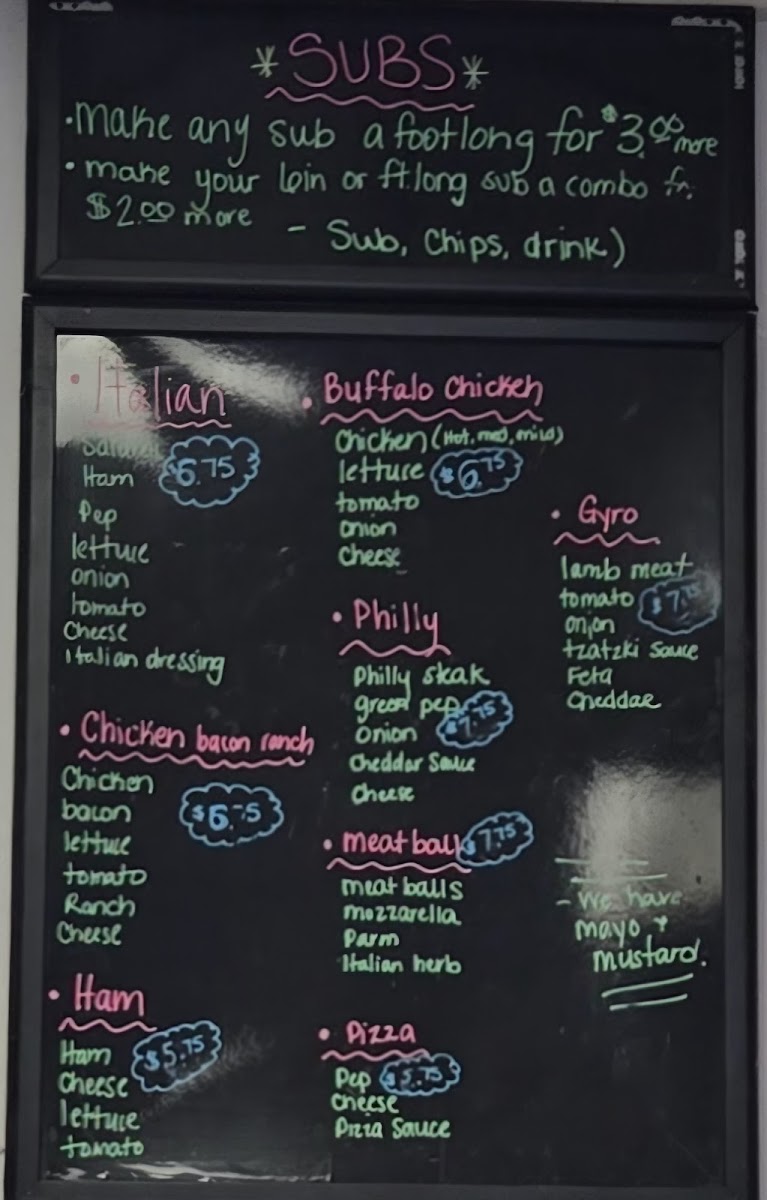 *SUBS*
• make any sub a footlong for $3.00 more
• make your 6in or ft.long sub a combo fr.
$2.00 more
- Sub, Chips, drink)
• Italian
Salami
$6.75
Ham
Pep
lettuce
onion
tomato
Cheese
Italian dressing
• Chicken bacon ranch
Chicken
bacon
$6.75
lettuce
tomato
Ranch
Cheese
• Ham
Ham
$5.75
Cheese
lettuce
tomato
• Buffalo Chicken
Chicken (Hot, med, mild)
lettuce $6.75
tomato
onion
Cheese
• Philly
Philly steak
green pep
onion $7.75
Cheddar Sauce
Cheese
• meatball $7.75
meatballs
mozzarella
Parm
Italian herb
• Pizza
Pep $5.75
Cheese
Pizza Sauce
• Gyro
lamb meat
tomato $7.75
onion
tzatzki sauce
Feta
Cheddar
- We have
mayo +
mustard.